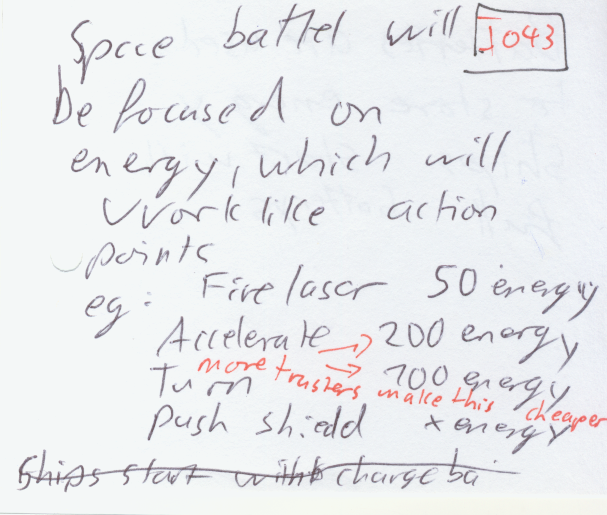 Space battel will
J043
be focused on
energy, which will
work like action
points
eg: Fire laser 50 energy
Accelerate → 200 energy
more trusters make this cheaper
Turn → 100 energy
Push shield x energy
Ships start with charge ba